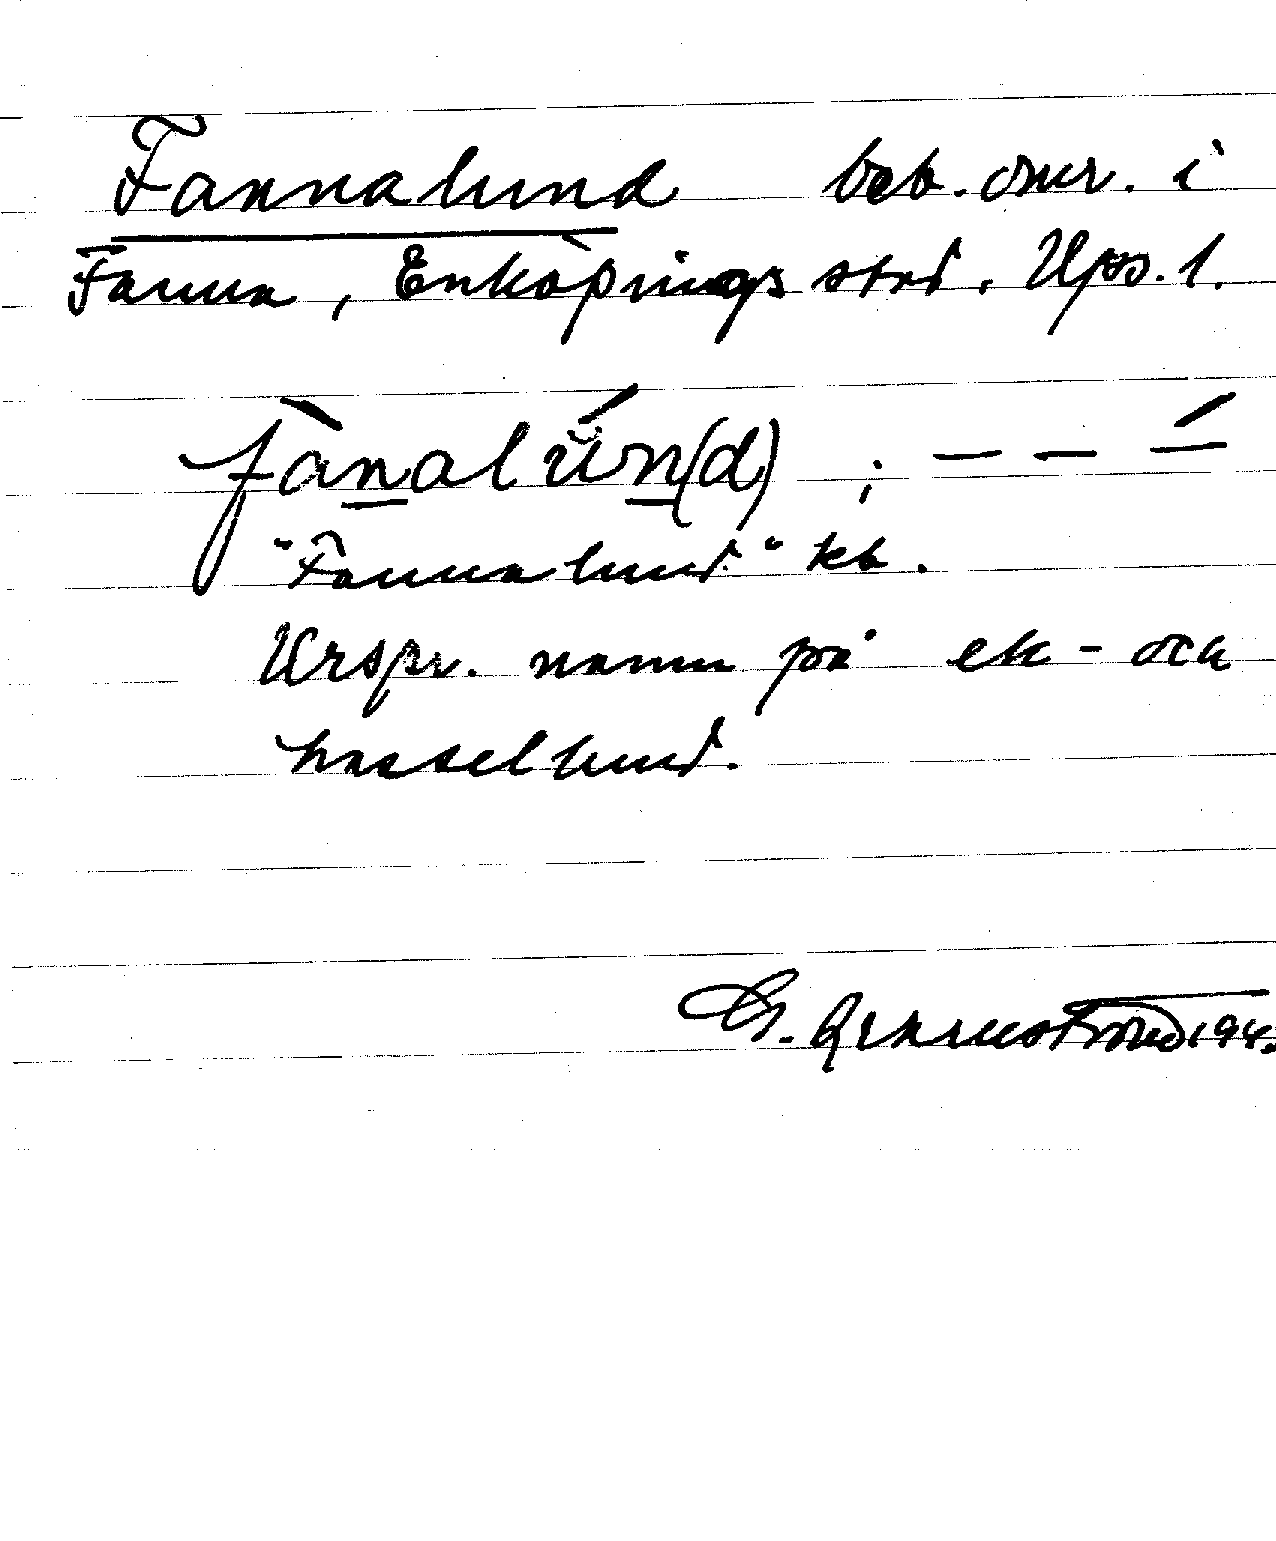 Fannalund beb. omr. i
Fanna, Enköpings stad. Ups. l.
fànalún(d) ; – – –́
"Fannalund" kb.
Urspr. namn på ek- och
hassellund.
G. 194.